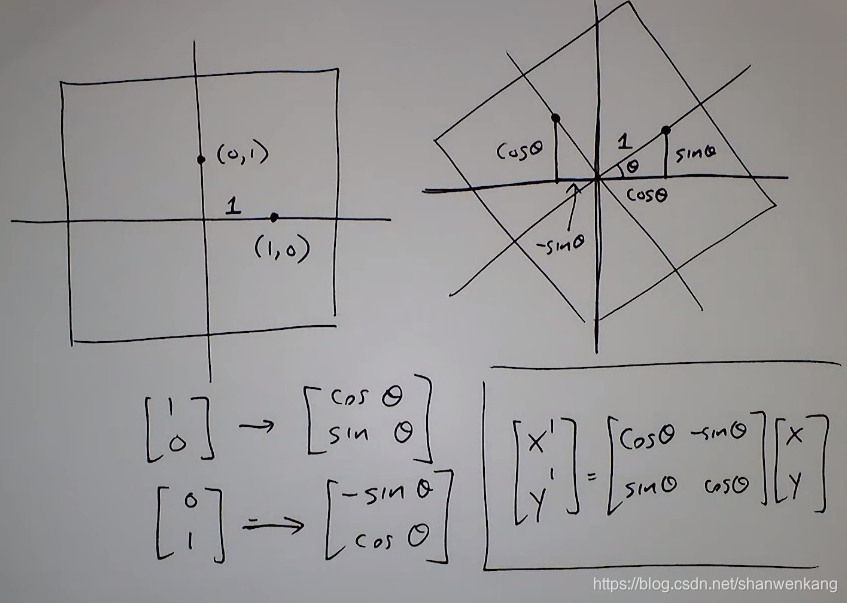 (0,1)
1
(1,0)
cosθ
1
θ
sinθ
cosθ
-sinθ
[1 0] → [cos θ sin θ]
[0 1] ⇒ [-sin θ cos θ]
[x' y'] = [cosθ -sinθ sinθ cosθ] [x y]
https://blog.csdn.net/shanwenkang